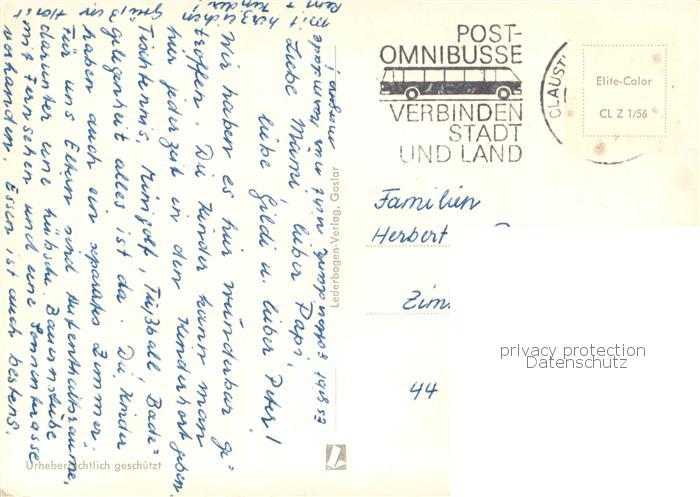 POST-
OMNIBUSSE
VERBINDEN
STADT
UND LAND
CLAUST
Elite-Color
CL Z 1/56
Familien
Herbert
44
privacy protection
Datenschutz
Lederbogen-Verlag, Goslar
Urheberrechtlich geschützt
Liebe Mimi, lieber Papi,
liebe Gildi u. lieber Peter!
Wir haben es hier wunderbar ge=
troffen. Die Kinder kann man
hier jederzeit in den Kinderhort geben.
Tischtennis, Minigolf, Fußball, Bade=
gelegenheit alles ist da. Die Kinder
haben auch ein separates Zimmer.
Für uns Eltern sind Aufenthaltsräume,
darunter eine hübsche Bauernstube
mit Fernsehen und eine Sonnenterasse
vorhanden. Essen ist auch bestens.
mit herzlichen
Grüßen